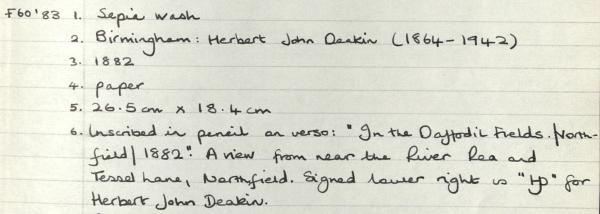 F60'83 1. Sepia wash
2. Birmingham: Herbert John Deakin (1864-1942)
3. 1882
4. paper
5. 26.5cm x 18.4cm
6. Inscribed in pencil on verso: "In the Daffodil Fields./North-
field/1882". A view from near the River Rea and
Tessel Lane, Northfield. Signed lower right is "HD" for
Herbert John Deakin.